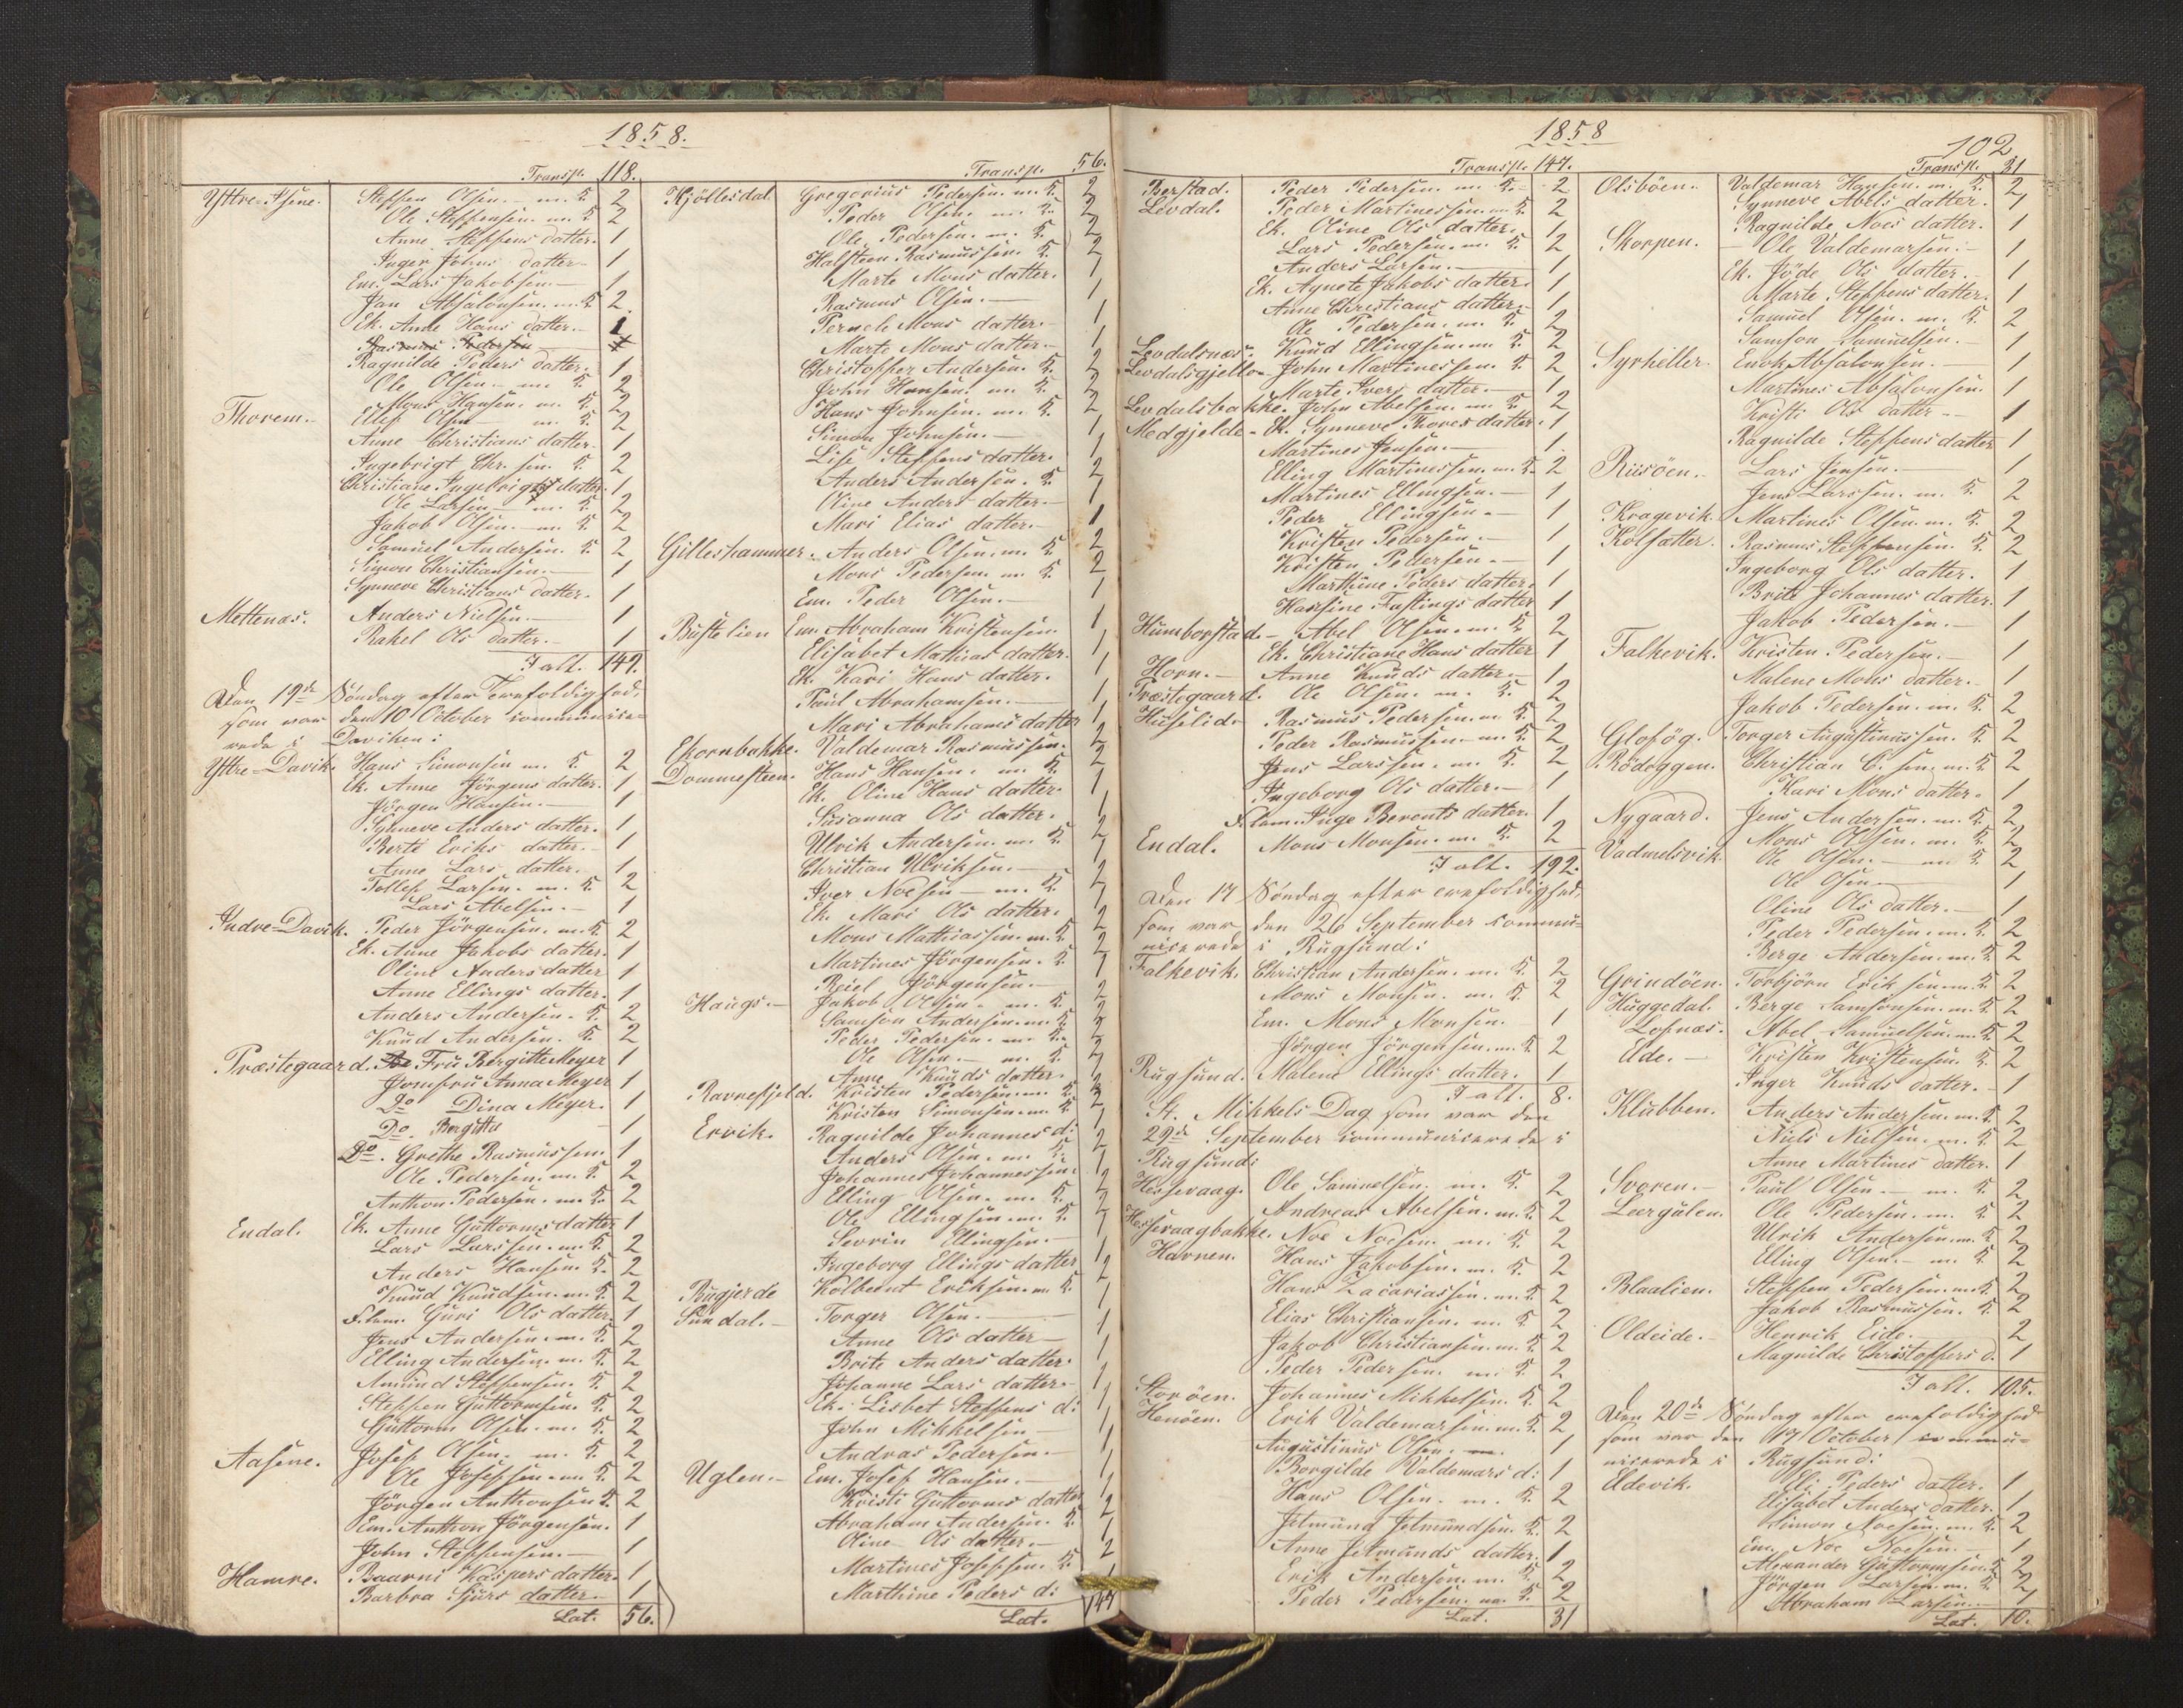 1858.
Transp. 118.
Yttre-Aſene. Steffen Olſen. m. K. 2
Ole Steffenſen. m. K. 2
Anne Steffens datter. 1
Inger Johns datter. 1
Em. Lars Jakobſen. 1
Jan Abſalonſen. m. K. 2.
Ek. Anne Hans datter. 1
Rasmus Pederſen
Ragnilde Peders datter. 1
Ole Olſen. m. K. 2
Mons Hanſen. m. K. 2
Thorem. Elef Olſen m. K. 2
Anne Christians datter. 1
Ingebrigt Chr. ſen. K. 2
Christiane Ingebrigts datter. 1
Ole Larſen m. K. 2
Jakob Olſen. m. K. 2
Samuel Anderſen. K. 2
Simon Christianſen. 1
Synneve Christians datter. 1
Mettenæs. Anders Nielſen. 1
Rakel Ols datter. 1
I alt. 149.
Den 19de Søndag efter Trefoldighed.
ſom var den 10 October communice-
rede i Daviken:
Yttre-Davik. Hans Simonſen m. K. 2
Ek. Anne Jörgens datter. 1
Jörgen Hanſen. 1
Synneve Anders datter. 1
Berte Eriks datter. 1
Anne Lars datter. 1
Tollef Larſen. m. K. 2
Lars Abelſen. 1
Indre-Davik. Peder Jörgenſen. m. K. 2
Ek. Anne Jakobs datter. 1
Oline Anders datter 1
Anne Ellings datter. 1
Anders Anderſen. K. 2
Knud Anderſen. K. 2
Præstegaard. Fru Bergitte Meyer 1
Jomfru Anna Meyer 1
Do Dina Meyer. 1
Do. Bergitte 1
Do. Grethe Rasmusſen 1
Ole Pederſen. m. K. 2
Anthon Pederſen. m. K. 2
Endal. Ek. Anne Guttorms datter 1
Lars Larsſen. m. K. 2
Anders Hanſen. K. 2
Knud Knudſen. m. K. 2
F. lem. Guri Ols datter 1
Jens Anderſen. m. K. 2
Elling Anderſen. m. K. 2
Amund Steffenſen. K. 2
Steffen Guttormſen. K. 2
Guttorm Olſen. m. K. 2
Aaſene. Joſef Olſen. m. K. 2
Ole Joſefſen. m. K. 2
Jörgen Anthonſen K. 2
Em. Anthon Jörgenſen. 1
John Steffenſen. 1
Hamre. Baarni Kaspers datter. 1
Barbra Sjurs datter. 1
Lat. 56.
Transp. 56.
Hjöllesdal. Gregorius Pederſen. m. K. 2
Peder Olſen. m. K. 2
Ole Pederſen. m. K. 2
Halſteen Rasmusſen. K. 2
Marte Mons datter. 1
Rasmus Olſen. 1
Pernele Mons datter. 1
Marte Mons datter. 1
Christopher Anderſen. K. 2
John Hanſen. m. K. 2
Hans Johnſen. m. K. 2
Simon Johnſen. 1
Liſe Steffens datter. 1
Anders Anderſen. K. 2
Oline Anders datter. 1
Mari Elias datter. 1
Gilleshammer. Anders Olſen. m. K. 2
Mons Pederſen. m. K. 2
Em. Peder Olſen. 1
Buſtelien Em. Abraham Kriſtenſen. 1
Eliſabet Mathias datter. 1
Ek. Kari Hans datter. 1
Paul Abrahamſen. 1
Mari Abrahams datter 1
Ekornbakke. Valdemar Rasmusſen. 2
Dommeſteen. Hans Hanſen. m. K. 2
Ek. Oline Hans datter. 1
Suſanna Ols datter. 1
Ulrik Anderſen. m. K. 2
Christian Ulrikſen. 1
Iver Noeſen m. K. 2
Ek. Mari Ols datter. 1
Mons Mathiasſen. m. K. 2
Martines Jörgenſen. K. 2
Reiel Jörgenſen. 1
Haugs. Jakob Olſen. m. K. 2
Samſon Anderſen. m. K. 2
Peder Pederſen. m. K. 2
Ole Olſen. m. K. 2
Anne Knuds datter. 1
Ravnefjeld. Kriſten Pederſen. m. K. 2
Kriſten Simonſen. m. K. 2
Ervik. Ragnilde Johannes d: 1
Anders Olſen. m. K. 2
Johannes Johannesſen. 1
Elling Olſen. m. K. 2
Ole Ellingſen. m. K. 2
Sevrin Ellingſen. 1
Ingeborg Ellings datter 1
Rugjerde Kolbeint Erikſen. m. K. 2
Sundal. Torger Olſen. 1
Anne Ols datter 1
Brite Anders datter. 1
Johanne Lars datter. 1
Ek. Lisbet Steffens d: 1
John Mikkelſen 1
Andras Pederſen. 1
Uglen. Em. Joſef Hanſen. 1
Kriſti Guttorms datter 1
Abraham Anderſen. K. 2
Oline Ols datter. 1
Martines Joſefſen. K. 2
Marthine Peders d: 1
Lat. 147
1858
102
Transp. 147.
Berſtad. Peder Pederſen. m. K. 2
Levdal. Peder Martinesſen. m. K. 2
Ek. Oline Ols datter. 1
Lars Pederſen. m. K. 2
Anders Larſen. 1
Ek. Agnete Jakobs datter 1
Anne Christians datter. 1
Ole Pederſen. m. K. 2
Levdalsnæs. Knud Ellingſen. m. K. 2
Levdalsgjelle. John Martinesſen. K. 2
Marte Ivers datter. 1
Levdalsbakke. John Abelſen. m. K. 2
Medgjelde. Ek. Synneve Thores datter. 1
Martines Jenſen. 1
Elling Martinesſen. m. K. 2
Martines Ellingſen. 1
Peder Ellingſen. 1
Kriſten Pederſen. 1
Kriſten Pederſen. 1
Marthine Peders datter. 1
Hanſine Faſtings datter 1
Humborſtad. Abel Olſen. m. K. 2
Ek. Christiane Hans datter 1
Horn. Anne Knuds datter 1
Præstegaard. Ole Olſen. m. K. 2
Huſelid. Rasmus Pederſen. m. K. 2
Peder Rasmusſen. m. K. 2
Jens Larsſen. m. K. 2
Ingeborg Ols datter. 1
F. lem. Inge Berents datter. 1
Endal. Mons Monſen. m. K. 2
I alt. 192.
Den 17 Søndag efter Trefoldighed.
ſom var den 26 September commu-
nicerede i Rugſund:
Falkevik. Christian Anderſen. m. K. 2
Mons Monſen. m. K. 2
Em. Mons Monſen. 1
Jörgen Jörgenſen. m. K. 2
Rugſund. Malene Ellings datter. 1
I alt. 8.
St. Mikkels Dag ſom var den
29de September communicerede i
Rugſund:
Hesſevaag. Ole Samuelſen. m. K. 2
Andreas Abelſen. m. K. 2
Hesſevaagbakke. Noe Noeſen. m. K. 2
Havnen. Hans Jakobſen. m. K. 2
Hans Zacariasſen. m. K. 2
Elias Christianſen. m. K. 2
Jakob Christianſen. m. K. 2
Peder Pederſen. m. K. 2
Storöen. Johannes Mikkelſen. K. 2
Henöen. Erik Valdemarſen. m. K. 2
Auguſtinus Olſen. 1
Borgilde Valdemars d: 1
Hans Olſen. m. K. 2
Jetmund Jetmundſen. K. 2
Anne Jetmunds datter. 1
Erik Anderſen. m. K. 2
Peder Pederſen. m. K. 2
Lat. 31
Transp. 31
Olsböen. Valdemar Hanſen. m. K. 2
Synneve Abels datter. 1
Ragnilde Noes datter. 1
Skorpen. Ole Valdemarſen. 1
Ek. Jöde Ols datter. 1
Marte Steffens datter. 1
Samuel Olſen. m. K. 2
Samſon Samuelſen. 1
Syrheller. Enok Abſalonſen. 1
Martines Abſalonſen. 1
Kriſti Ols datter 1
Ragnilde Steffens datter 1
Riisöen. Lars Jenſen. 1
Jens Larsſen. m. K. 2
Kragevik. Martines Olſen. m. K. 2
Kolſætter. Rasmus Steffenſen. K. 2
Ingeborg Ols datter. 1
Brite Johannes datter. 1
Jakob Pederſen. 1
Falkevik. Kriſten Pederſen. 1
Malene Mons datter. 1
Jakob Pederſen. m. K. 2
Glofög. Torger Auguſtinusſen. K. 2
Rödeggen. Christian C. ſen. m. K. 2
Kari Mons datter. 1
Nygaard. Jens Anderſen. m. K. 2
Vadmelsvik. Mons Olſen. m. K. 2
Ole Olſen. m K. 2
Ole Olſen 1
Oline Ols datter. 1
Peder Pederſen. m. K. 2
Berge Anderſen. m. K. 2
Grindöen. Torbjörn Erikſen. m. K. 2
Huggedal. Berge Samſonſen. m. K. 2
Lofnæs. Abel Samuelſen. m. K. 2
Eide. Kriſten Kriſtenſen. K. 2
Inger Knuds datter. 1
Klubben. Anders Anderſen. m. K. 2
Niels Nielſen. m. K. 2
Anne Martines datter. 1
Svoren. Paul Olſen. m. K. 2
Leirgulen. Ole Pederſen. m. K. 2
Ulrik Anderſen. m. K. 2
Elling Olſen. m. K. 2
Blaalien. Steffen Pederſen. m. K. 2
Jakob Rasmusſen. K. 2
Oldeide. Henrik Eide. 2
Magnilde Christoffers d. 1
I alt. 105.
Den 20de Søndag efter Trefoldighed
ſom var den 17 October commu-
nicerede i Rugſund:
Eldevik. Eli Peders datter. 1
Eliſabet Anders datter. 1
Simon Noeſen. m. K. 2
Em. Noe Noeſen. 1
Alexander Guttormſen. K. 2
Jörgen Larſen. m. K. 2
Abraham Larſen. 1
Lat. 10.